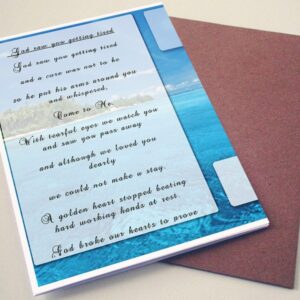 God saw you getting tired
God saw you getting tired
and a cure was not to be
so he put his arms around you
and whispered,
Come to Me.
With tearful eyes we watch you
and saw you pass away
and although we loved you
dearly
we could not make a stay.
A golden heart stopped beating
hard working hands at rest.
God broke our hearts to prove